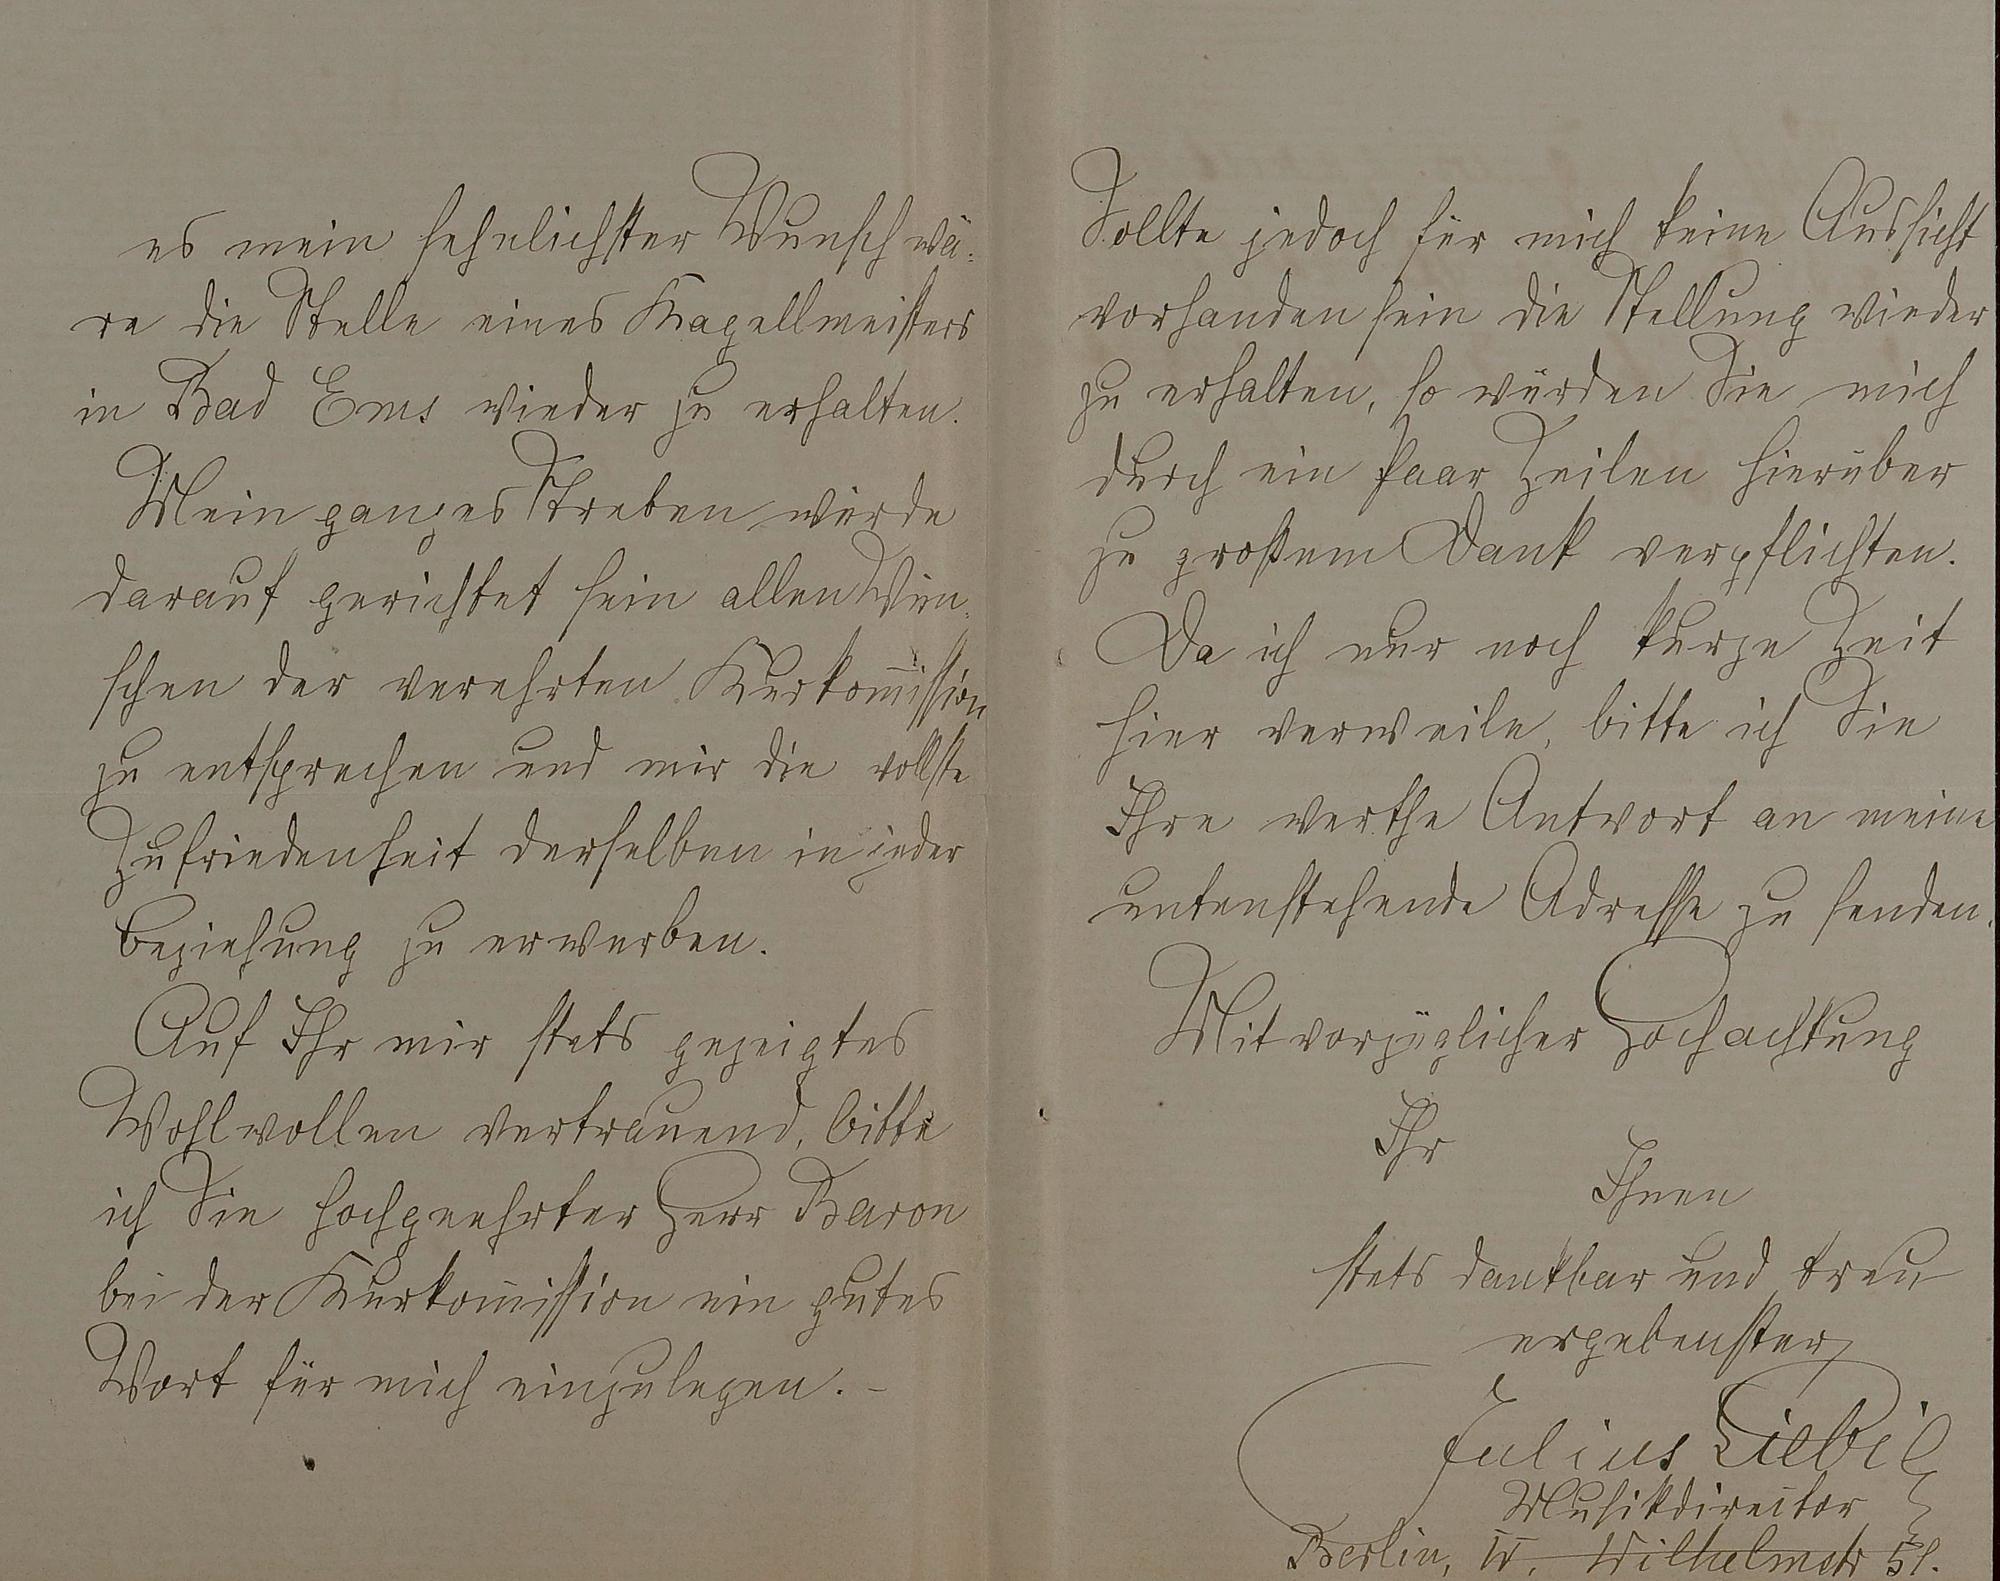 es mein sehnlichster Wunsch wä-
re die Stelle eines Kapellmeisters
in Bad Ems wieder zu erhalten.
Mein ganzes Streben würde
darauf gerichtet sein allen Wün-
schen der verehrten Kurkom̅ission
zu entsprechen und mir die vollste
Zufriedenheit derselben in jeder
Beziehung zu erwerben.
Auf Ihr mir stets gezeigtes
Wohlwollen vertrauend, bitte
ich Sie hochgeehrter Herr Baron
bei der Kurkom̅ission ein gutes
Wort für mich einzulegen. –
Sollte jedoch für mich keine Aussicht
vorhanden sein die Stellung wieder
zu erhalten, so würden Sie mich
durch ein Paar Zeilen hierüber
zu großem Dank verpflichten.
Da ich nur noch kurze Zeit
hier verweile, bitte ich Sie
Ihre werthe Antwort an meine
untenstehende Adresse zu senden.
Mit vorzüglicher Hochachtung
Ihr
Ihnen
stets dankbar und treu
ergebenster
Julius
Musikdirector
Berlin, W. Wilhelmstr 51.